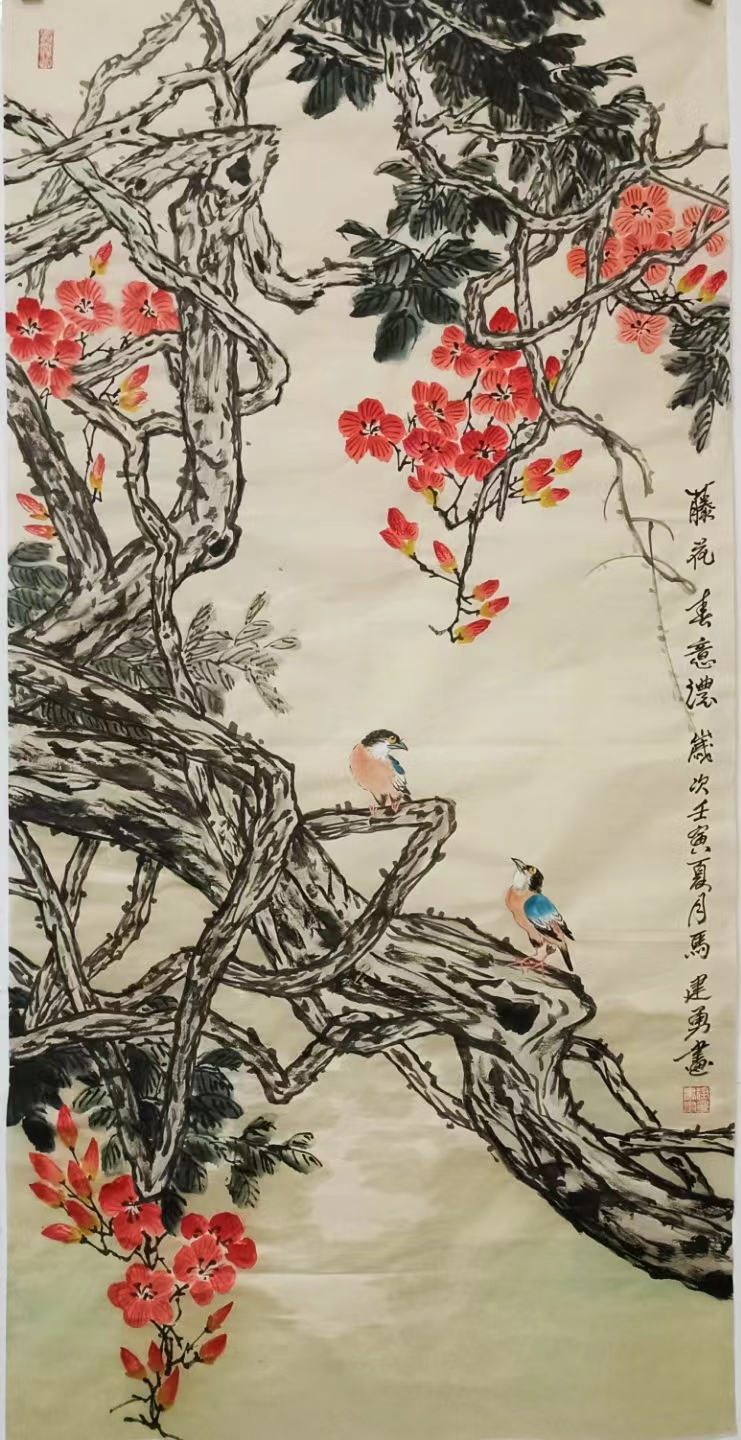 藤花春意濃歲次壬寅夏月馬建勇畫